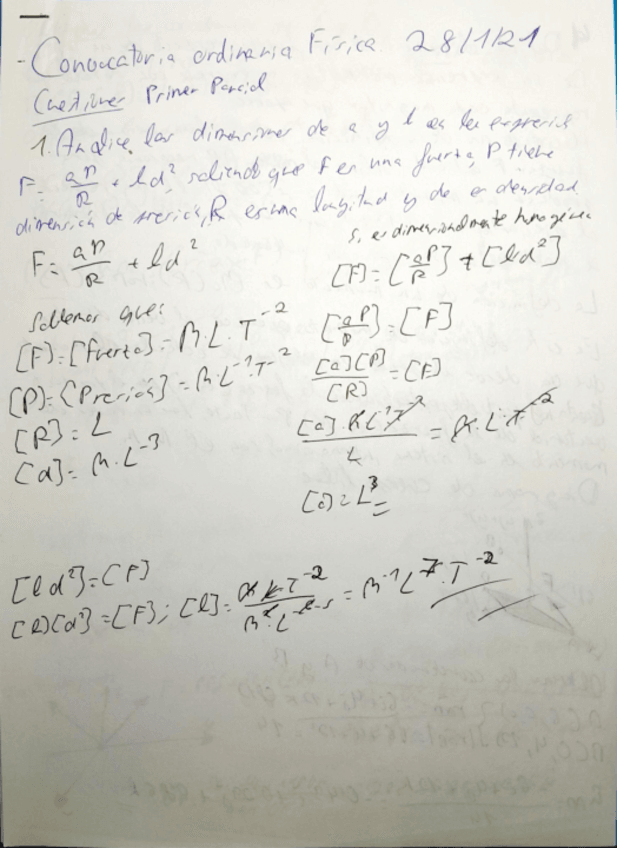 - Convocatoria ordinaria Física 28/1/21
Cuestiones Primer Parcial
1. Analice las dimensiones de a y l en la expresión
F = aP/R + ld², sabiendo que F es una fuerza, P tiene
dimensión de presión, R es una longitud y d es densidad
Si es dimensionalmente homogénea
F = aP/R + ld²
[F] = [aP/R] + [ld²]
Sabemos que:
[F] = [Fuerza] = M·L·T⁻²
[aP/R] = [F]
[P] = [Presión] = M·L⁻¹T⁻²
[a][P]/[R] = [F]
[R] = L
[a]·M L⁻¹T⁻²/L = M·L·T⁻²
[d] = M·L⁻³
[a] = L³
[ld²] = [F]
[l][d²] = [F]; [l] = M L T⁻²/M²·L⁻⁶ = M⁻¹L⁷·T⁻²